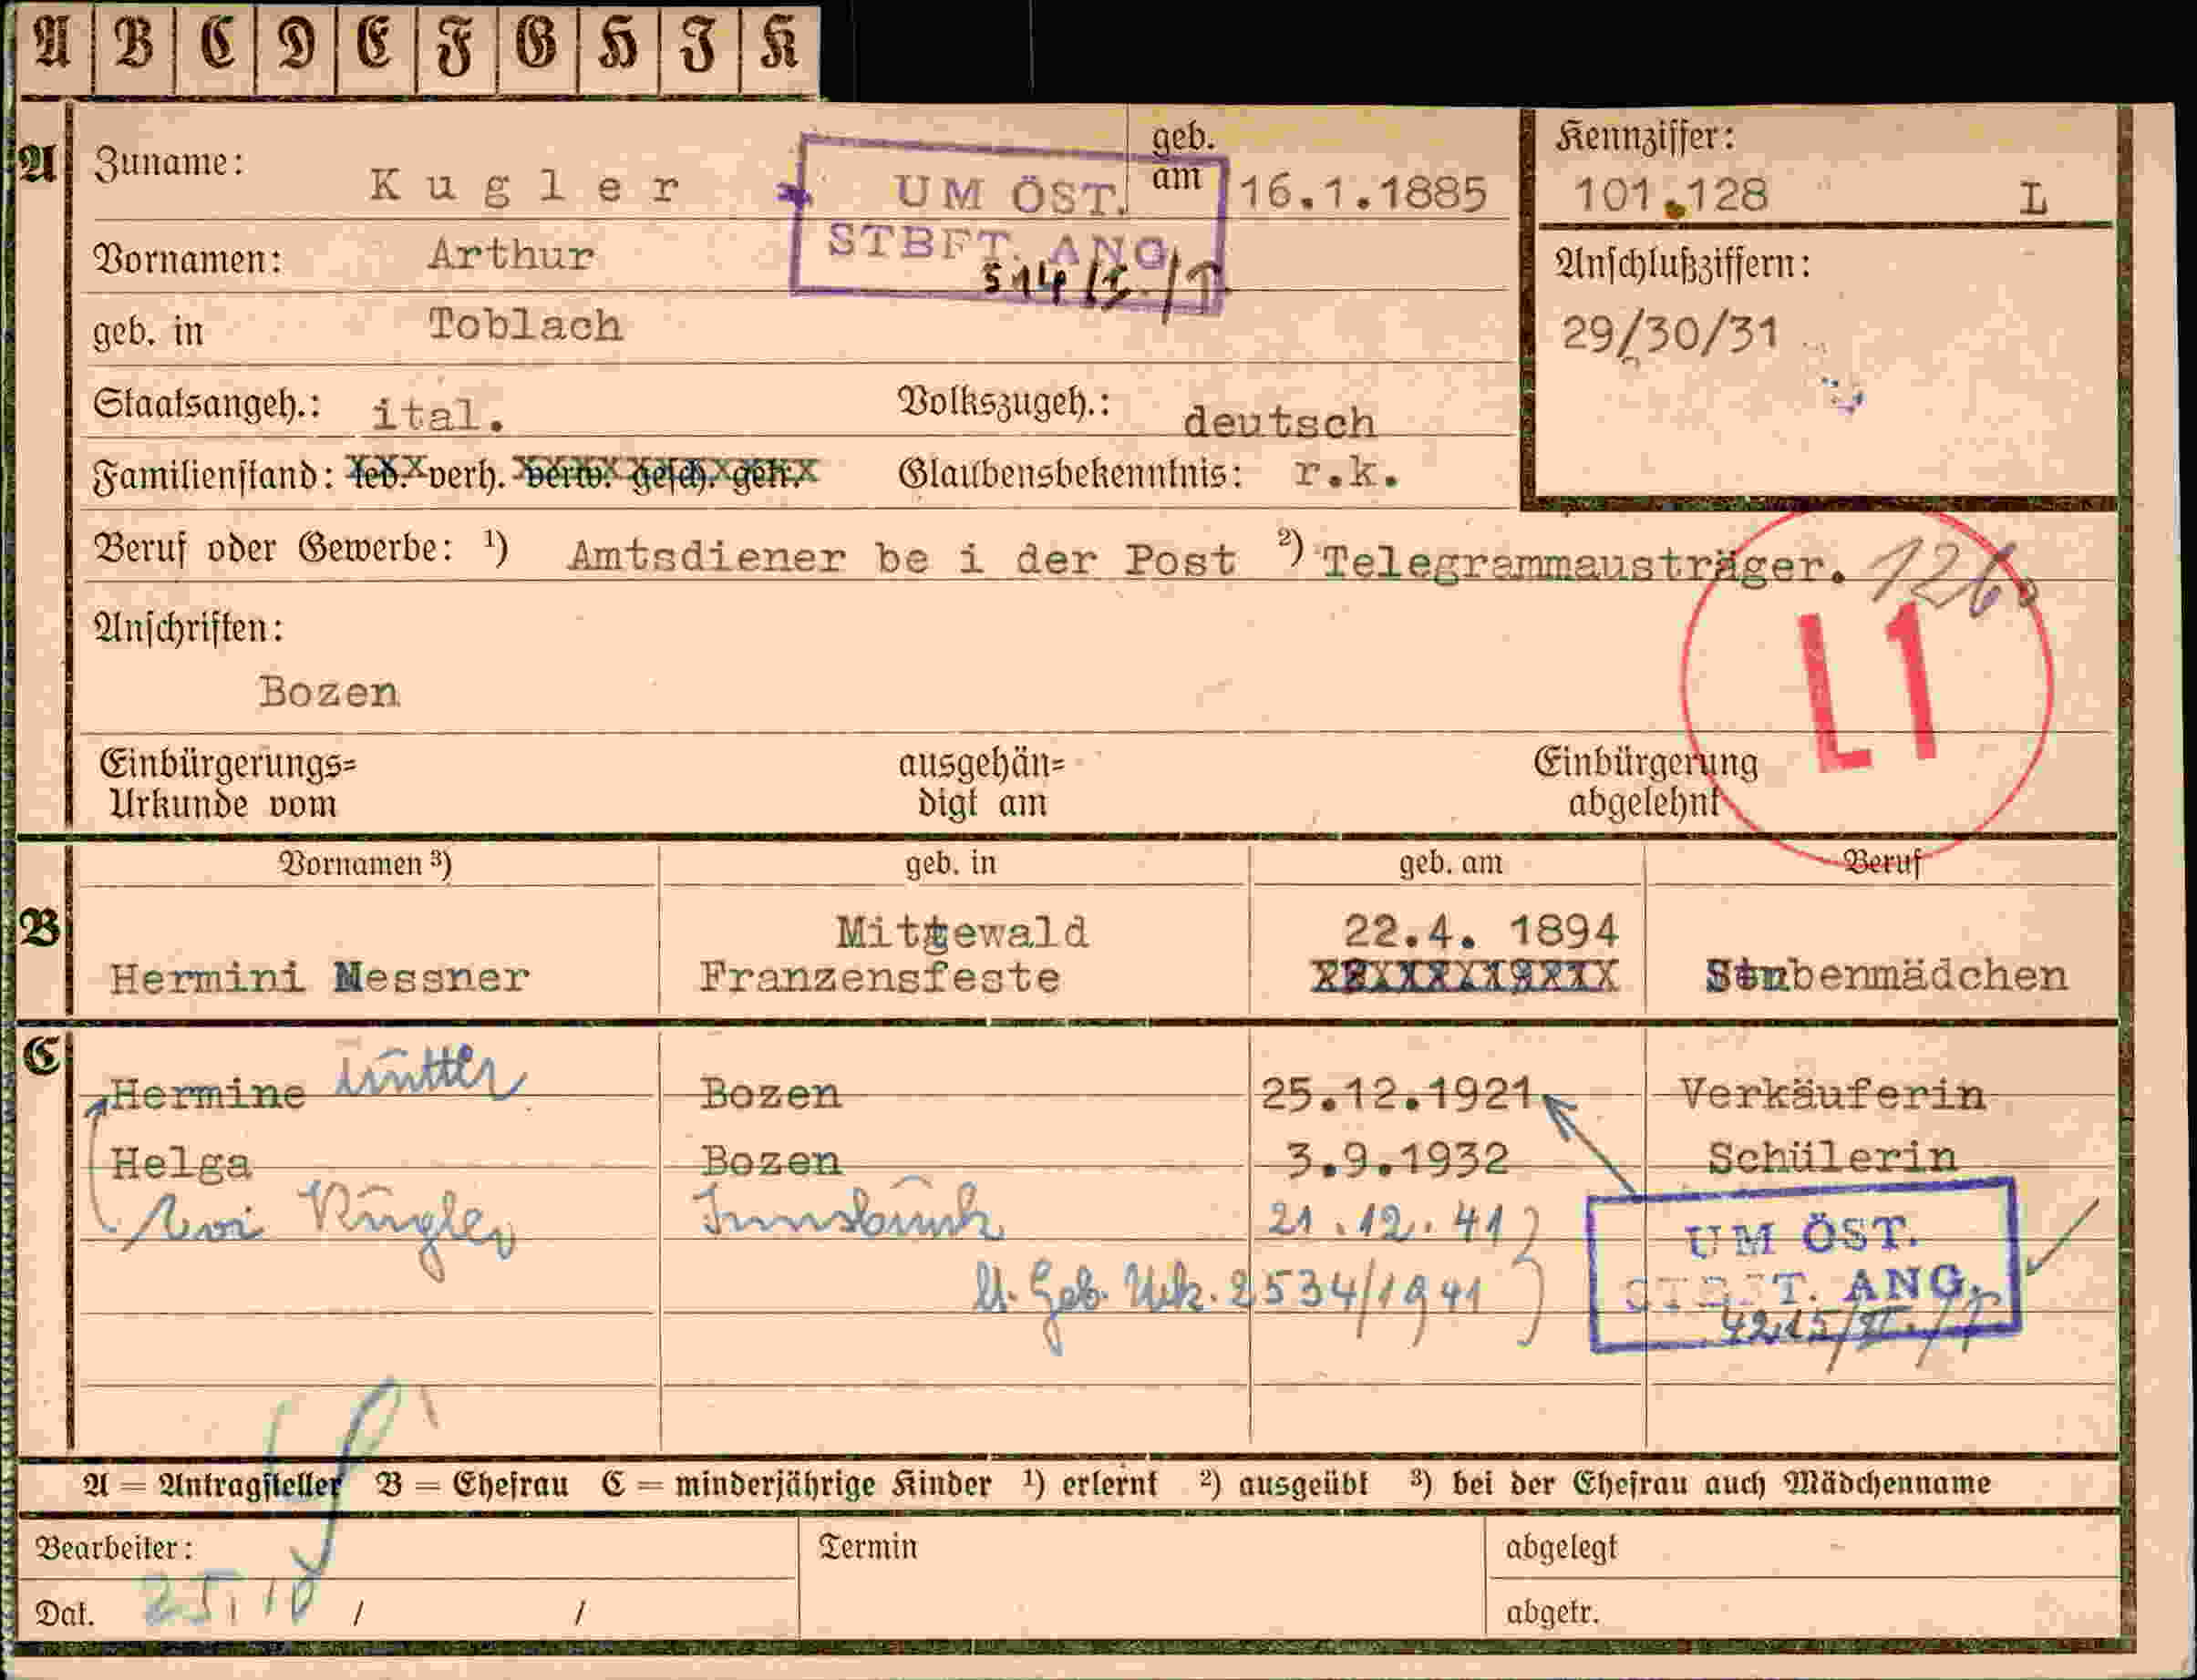 A B C D E F G H J K
A Zuname: Kugler geb. am 16.1.1885
UM ÖST.
STBFT. ANG.
Kennziffer:
101.128 L
Vornamen: Arthur
Anschlußziffern:
29/30/31
geb. in Toblach
Staatsangeh.: ital. Volkszugeh.: deutsch
Familienstand: led. verh. verw. gesch. getr. Glaubensbekenntnis: r.k.
Beruf oder Gewerbe: ¹) Amtsdiener be i der Post ²) Telegrammausträger. 126
L1
Anschriften:
Bozen
Einbürgerungs= Urkunde vom
ausgehän= digt am
Einbürgerung abgelehnt
Vornamen ³) geb. in geb. am Beruf
B Mittewald 22.4. 1894
Hermini Messner Franzensfeste Stubenmädchen
C Hermine Bozen 25.12.1921 Verkäuferin
Helga Bozen 3.9.1932 Schülerin
Kugler Innsbruck 21.12.41
Geb. Urk. 2534/1941
UM ÖST.
STBFT. ANG.
A = Antragsteller B = Ehefrau C = minderjährige Kinder ¹) erlernt ²) ausgeübt ³) bei der Ehefrau auch Mädchenname
Bearbeiter: Termin abgelegt
Dat. 25.10 / / abgetr.